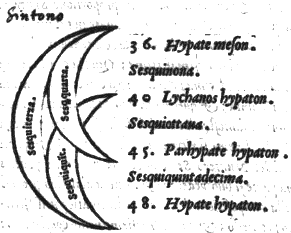 Sintono
Sesquiterza.
Sesququarta.
Sesquiquit.
36. Hypate meson.
Sesquinona.
40 Lychanos hypaton.
Sesquiottaua.
45. Parhypate hypaton.
Sesquiquintadecima.
48. Hypate hypaton.